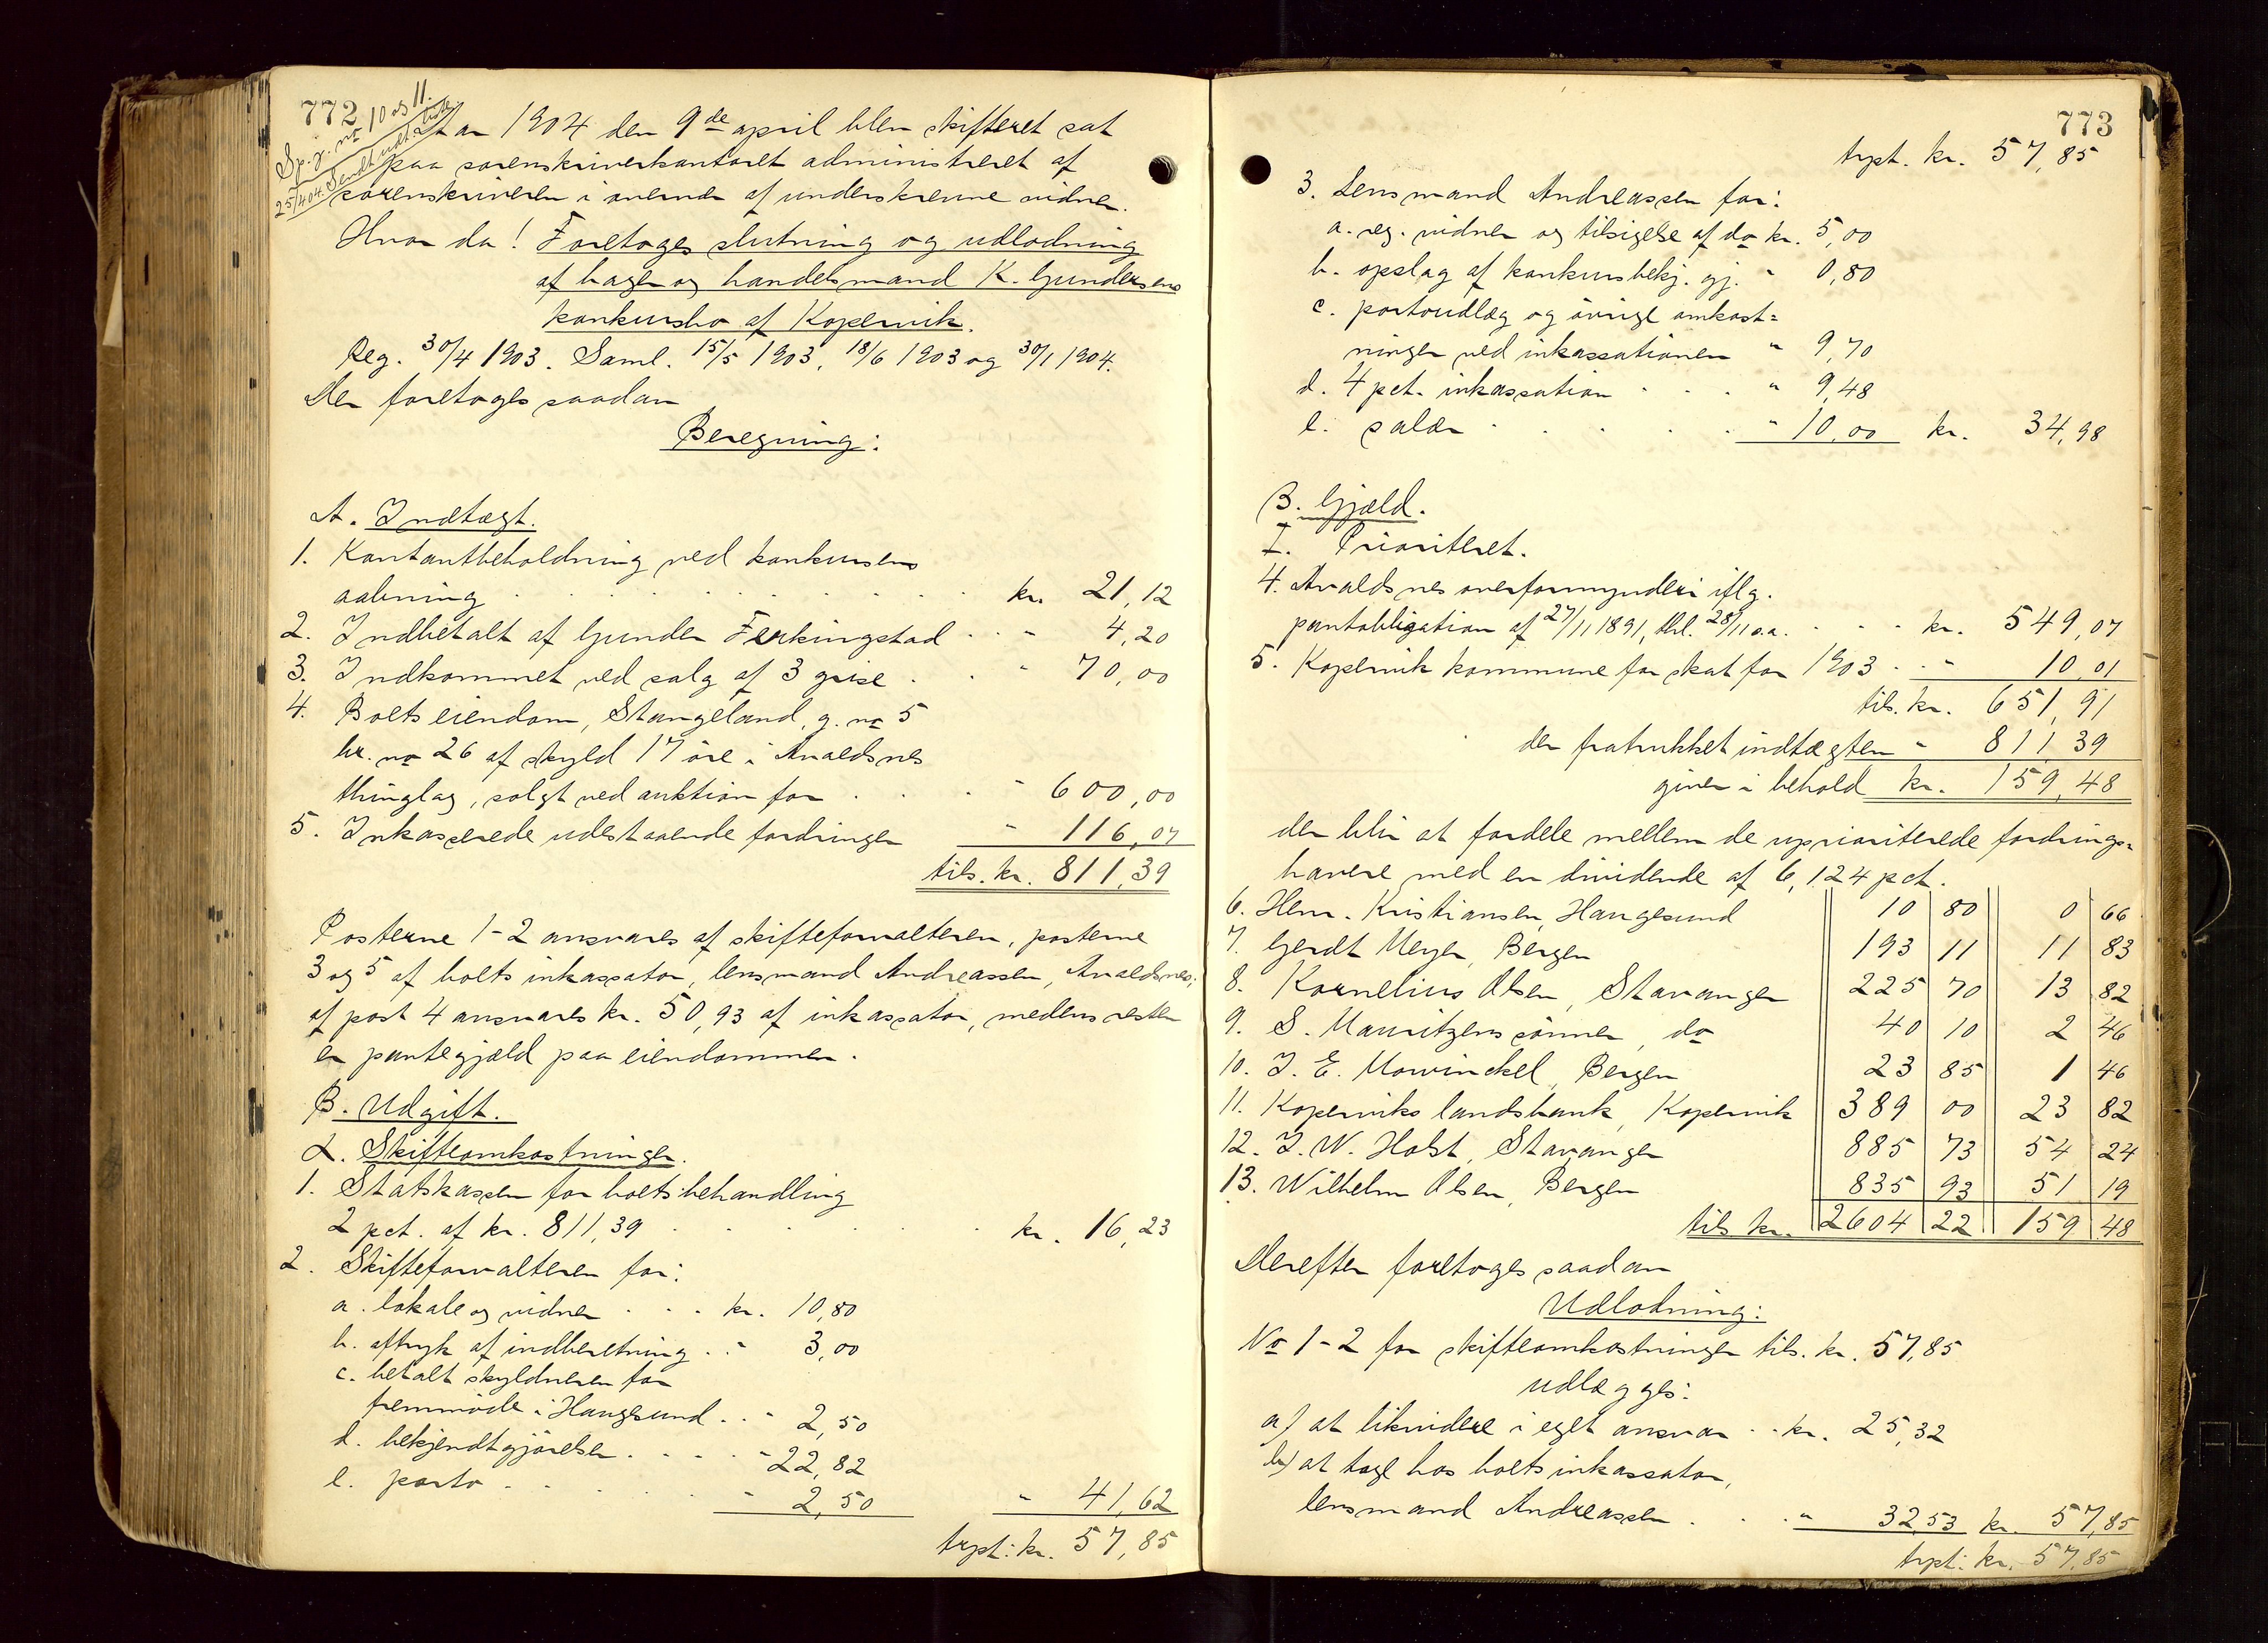 772
Sp. j. no 10 og 11.
25/4 04 Sendt udt. at
Aar 1904 den 9de april blev skifteret sat
paa sorenskriverkontoret administreret af
sorenskriveren i overvær af underskrevne vidner.
Hvor da! Foretoges slutning og udlodning
af bager og handelsmand K. Gundersens
konkursbo af Kopervik.
Reg. 30/4 1903. Saml. 15/5 1903, 18/6 1903 og 30/1 1904.
Der foretoges saadan
Beregning:
A. Indtægt.
1. Kontantbeholdning ved konkursens
aabning . . . . . . . . . . . kr. 21,12
2. Indbetalt af Gunder Ferkingstad . . - 4,20
3. Indkommet ved salg af 3 grise . . " 70,00
4. Boets eiendom, Stangeland, g. no 5
br. no 26 af skyld 17 øre i Avaldsnes
thinglag, solgt ved auktion for . . . - 600,00
5. Inkasserede udestaaende fordringer - 116,07
tils. kr. 811,39
Posterne 1-2 ansvares af skifteforvalteren, posterne
3 og 5 af boets inkassator, lensmand Andreassen, Avaldsnes;
af post 4 ansvares kr. 50,93 af inkassator, medens resten
er pantegjæld paa eiendommen.
B. Udgift.
α. Skifteomkostninger.
1. Statskassen for boets behandling
2 pct. af kr. 811,39 . . . . . kr. 16,23
2. Skifteforvalteren for:
a. lokale og vidner . . . kr. 10,80
b. aftryk af indberetning . . " 3,00
c. betalt skyldneren for
fremmøde i Haugesund . . - 2,50
d. bekjendtgjørelser . . . . - 22,82
e. porto . . . . . - 2,50 " 41,62
trpt: kr. 57,85
773
trpt. kr. 57,85
3. Lensmand Andreassen for:
a. reg. vidner og tilsigelse af do kr. 5,00
b. opslag af konkursbekj. gj. " 0,80
c. portoudlæg og øvrige omkost=
ninger ved inkassationen " 9,70
d. 4 pct. inkassation . . . " 9,48
e. salær . . . . . " 10,00 kr. 34,98
β. Gjæld.
I. Prioriteret.
4. Avaldsnes overformynderi iflg.
pantobligation af 27/11 1891, thl. 28/11 s.a. . . . kr. 549,07
5. Kopervik kommune for skat for 1903 . . " 10,01
tils. kr. 651,91
der fratrukket indtægten " 811,39
giver i behold kr. 159,48
der blir at fordele mellem de uprioriterede fordrings=
havere med en dividende af 6,124 pct.
6. Henr. Kristiansen, Haugesund 10 80 0 66
7. Gerdt Meyer, Bergen 193 11 11 83
8. Kornelius Olsen, Stavanger 225 70 13 82
9. S. Mauritzens sønner, do 40 10 2 46
10. J. E. Mowinckel, Bergen 23 85 1 46
11. Koperviks landsbank, Kopervik 389 00 23 82
12. J. W. Holst, Stavanger 885 73 54 24
13. Wilhelm Olsen, Bergen 835 93 51 19
tils kr. 2604 22 159 48
Derefter foretoges saadan
Udlodning:
No 1-2 for skifteomkostninger tils. kr. 57,85
udlægges:
a) at likvidere i eget ansvar . . kr. 25,32
b) at tage hos boets inkassator,
lensmand Andreassen . . . " 32,53 kr. 57,85
trpt: kr. 57,85